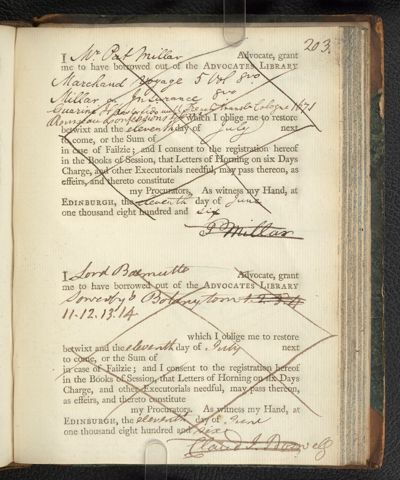 203.
I Mr. Pat Millar Advocate, grant
me to have borrowed out of the ADVOCATES LIBRARY
Marchand Voyage 5 Vol 8vo
Millar on Insurance 8vo
which I oblige me to restore
betwixt and the eleventh day of July next
to come, or the Sum of
in case of Failzie; and I consent to the registration hereof
in the Books of Session, that Letters of Horning on six Days
Charge, and other Executorials needful, may pass thereon, as
effeirs, and thereto constitute
my Procurators, As witness my Hand, at
EDINBURGH, the eleventh day of June
one thousand eight hundred and six
P Millar
I Lord Balmuto Advocate, grant
me to have borrowed out of the ADVOCATES LIBRARY
Sowerby's Botany tom 1.2.3.4
11.12.13.14
which I oblige me to restore
betwixt and the eleventh day of July next
to come, or the Sum of
in case of Failzie; and I consent to the registration hereof
in the Books of Session, that Letters of Horning on six Days
Charge, and other Executorials needful, may pass thereon,
as effeirs, and thereto constitute
my Procurators. As witness my Hand, at
EDINBURGH, the eleventh day of June
one thousand eight hundred and six
Claud I. Boswell